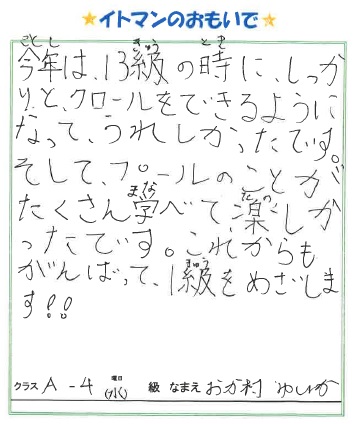 イトマンのおもいで
今年は、13級の時に、しっか
りと、クロールをできるように
なって、うれしかったです。
そして、プールのことが
たくさん学べて、楽しか
ったです。これからも
がんばって、1級をめざしま
す!!
クラス A-4 曜日 (水) 級 なまえ おか村 ゆいか